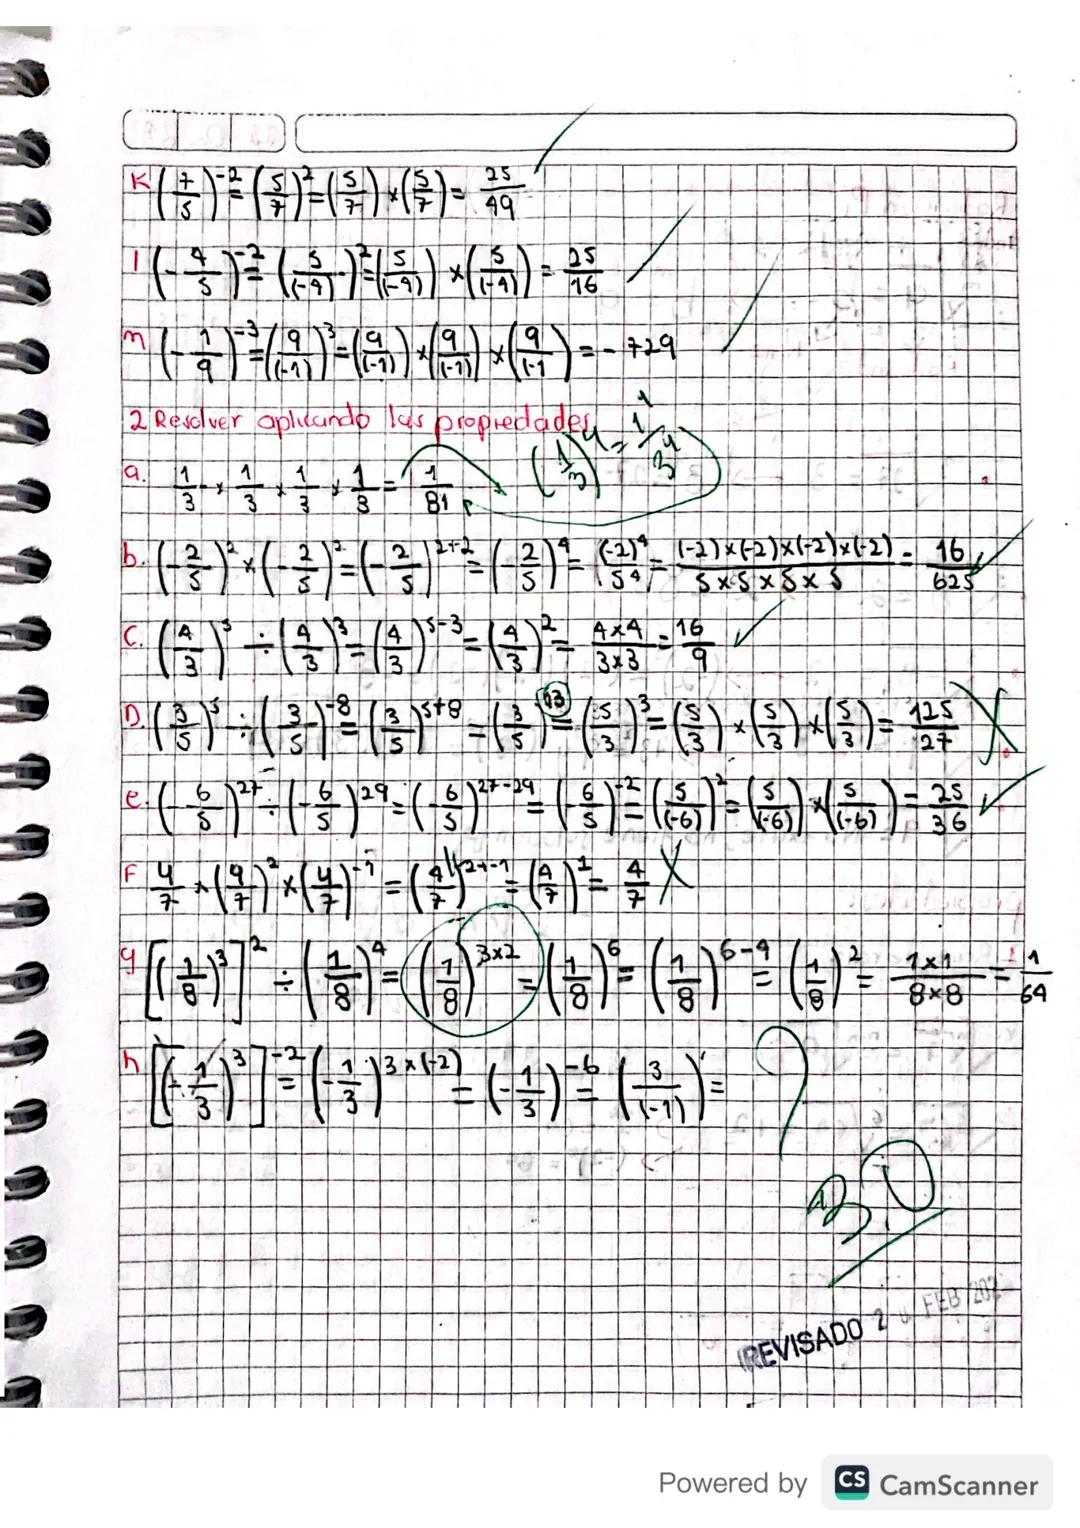 K (7/5)^-2 = (5/7)^2 = (5/7) x (5/7) = 25/49
l (-4/5)^-2 = (5/(-4))^2 = (5/(-4)) x (5/(-4)) = 25/16
m (-1/9)^-3 = (9/(-1))^3 = (9/(-1)) x (9/(-1)) x (9/(-1) = - 729
2 Resolver aplicando las propiedades
a. 1/3 x 1/3 x 1/3 x 1/3 = 1/81 (1/3)^4 = 1^4/3^4
b. (-2/5)^2 x (-2/5)^2 = (-2/5)^2+2 = (-2/5)^4 = (-2)^4/5^4 = (-2)x(-2)x(-2)x(-2)/5x5x5x5 = 16/625
C. (4/3)^5 ÷ (4/3)^3 = (4/3)^5-3 = (4/3)^2 = 4x4/3x3 = 16/9
D. (3/5)^5 ÷ (3/5)^-8 = (3/5)^5+8 = (3/5)^13 = (5/3)^3 = (5/3) x (5/3) x (5/3) = 125/27
e. (-6/5)^27 ÷ (-6/5)^29 = (-6/5)^27-29 = (-6/5)^-2 = (5/(-6))^2 = (5/(-6)) x (5/(-6)) = 25/36
F 4/7 x (4/7)^2 x (4/7)^-1 = (4/7)^1+2+-1 = (4/7)^1 = 4/7
g [(1/8)^3]^2 ÷ (1/8)^4 = (1/8)^3x2 = (1/8)^6 = (1/8)^6-4 = (1/8)^2 = 1x1/8x8 = 1/64
h [(-1/3)^3]^-2 = (-1/3)^3x(-2) = (-1/3)^-6 = (3/(-1)) =
?
3.0
REVISADO 2 FEB 202
Powered by CS CamScanner